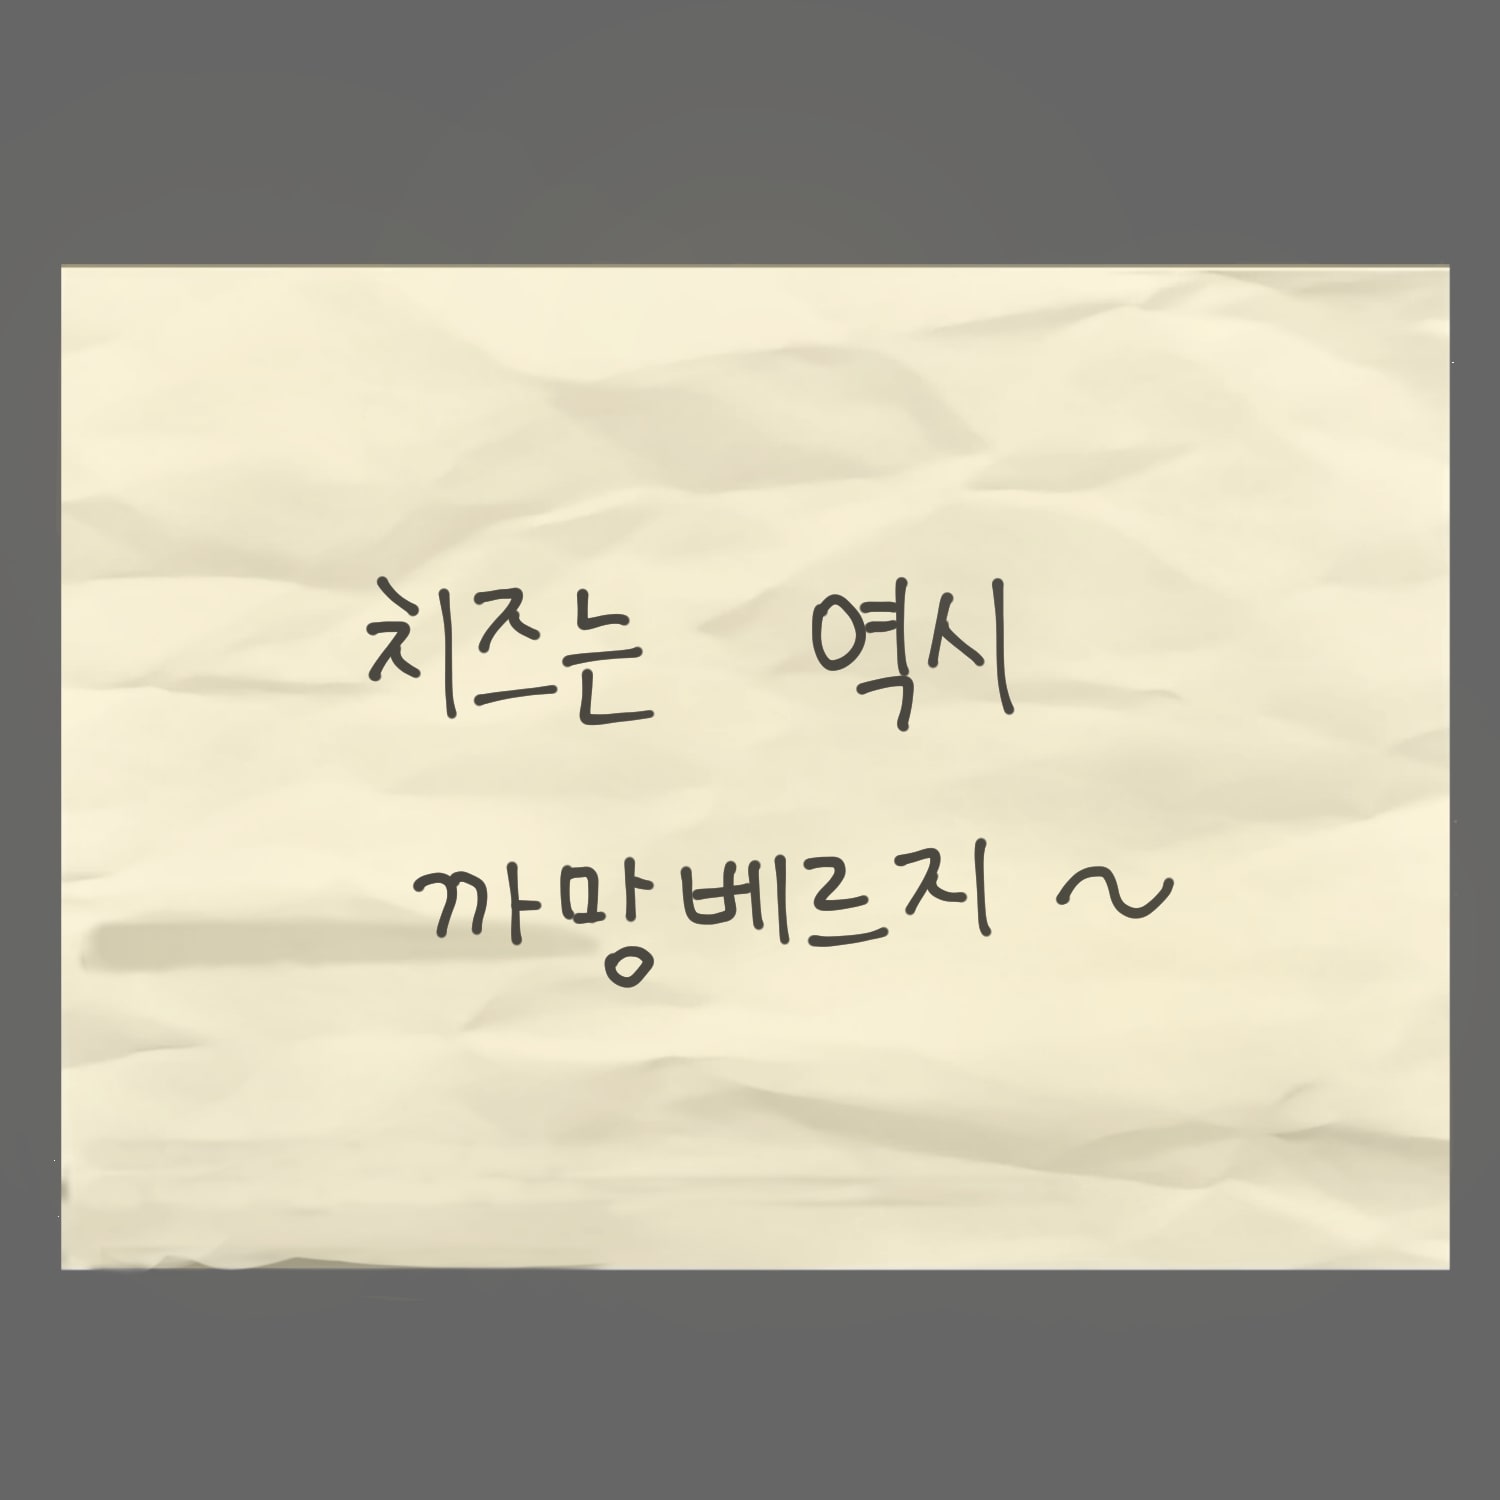 치즈는 역시
까망베르지~